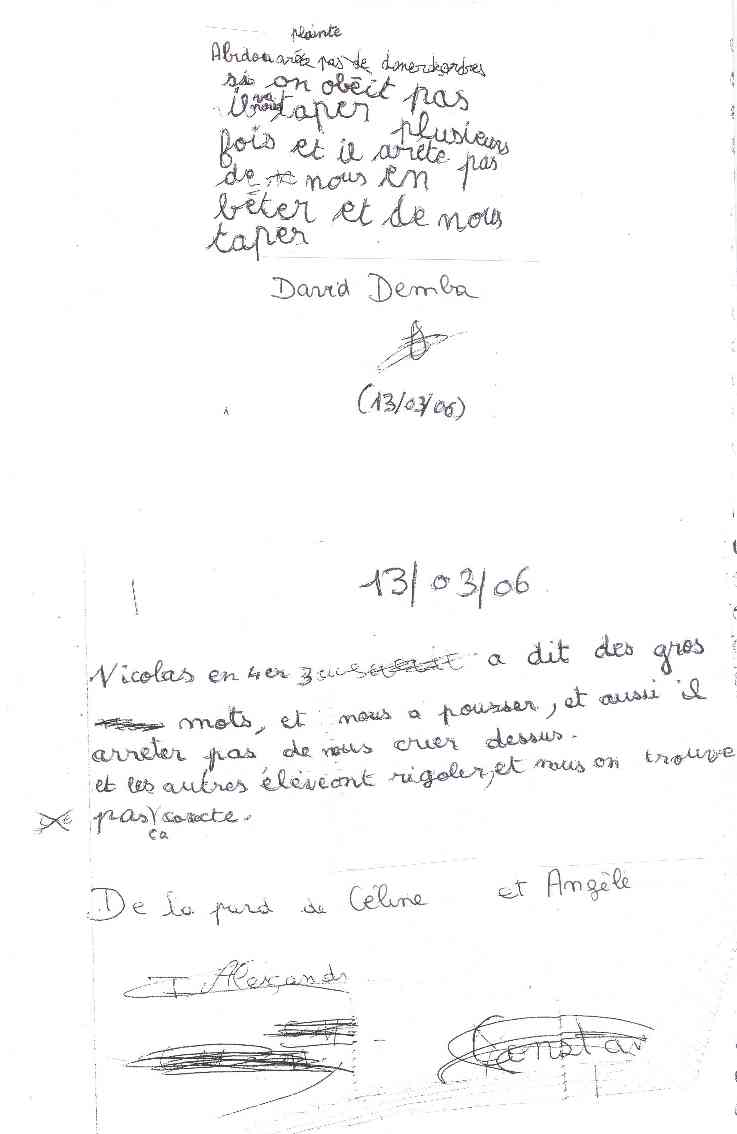 plainte
Abdou arête pas de doner d'ordres
si on obéit pas
Il va nous taper plusieurs
fois et il arrête pas
de nous en
bêter et de nous
taper
David Demba
(13/03/06)
13/03/06
Nicolas en 4er 3 a dit des gros
mots, et nous a pousser, et aussi il
arrêter pas de nous crier dessus.
et les autres élèveont rigoler, et nous on trouve
pas ça correcte.
De la pard de Céline et Angèle
Alexandr
Constan